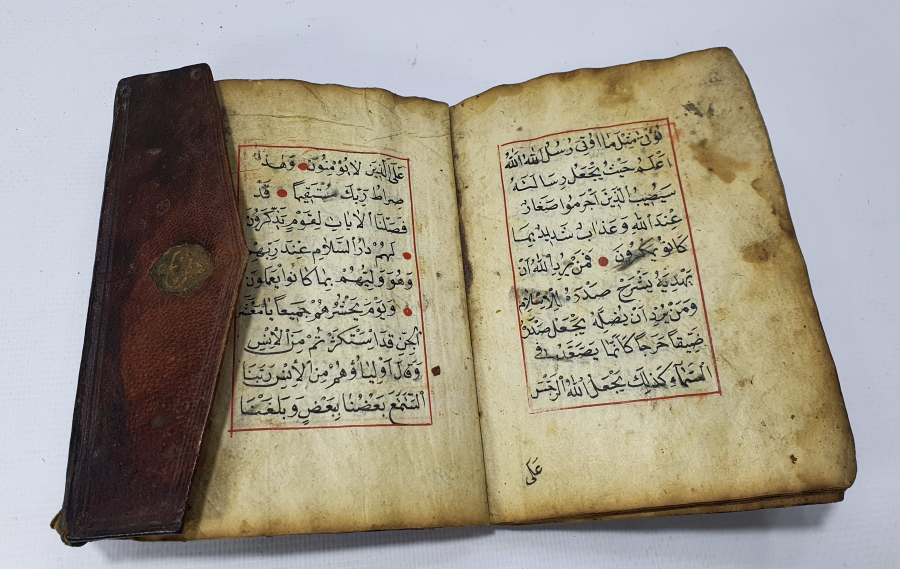 نُؤْتٰى مِثْلَ مَا اُوتِىَ رُسُلُ اللهِ اَللهُ
اَعْلَمُ حَيْثُ يَجْعَلُ رِسَالَتَهُ
سَيُصِيبُ الَّذِينَ اَجْرَمُوا صَغَارٌ
عِنْدَ اللهِ وَعَذَابٌ شَدِيدٌ بِمَا
كَانُوا يَمْكُرُونَ فَمَنْ يُرِدِ اللهُ اَنْ
يَهْدِيَهُ يَشْرَحْ صَدْرَهُ لِلْاِسْلَامِ
وَمَنْ يُرِدْ اَنْ يُضِلَّهُ يَجْعَلْ صَدْرَهُ
ضَيِّقاً حَرَجاً كَاَنَّمَا يَصَّعَّدُ فِى
السَّمَاءِ كَذٰلِكَ يَجْعَلُ اللهُ الرِّجْسَ
عَلَى
عَلَى الَّذِينَ لَا يُؤْمِنُونَ وَهٰذَا
صِرَاطُ رَبِّكَ مُسْتَقِيماً قَدْ
فَصَّلْنَا الْاٰيَاتِ لِقَوْمٍ يَذَّكَّرُونَ
لَهُمْ دَارُ السَّلَامِ عِنْدَ رَبِّهِمْ
وَهُوَ وَلِيُّهُمْ بِمَا كَانُوا يَعْمَلُونَ
وَيَوْمَ يَحْشُرُهُمْ جَمِيعاً يَا مَعْشَرَ
الْجِنِّ قَدِ اسْتَكْثَرْتُمْ مِنَ الْاِنْسِ
وَقَالَ اَوْلِيَاؤُهُمْ مِنَ الْاِنْسِ رَبَّنَا
اسْتَمْتَعَ بَعْضُنَا بِبَعْضٍ وَبَلَغْنَا